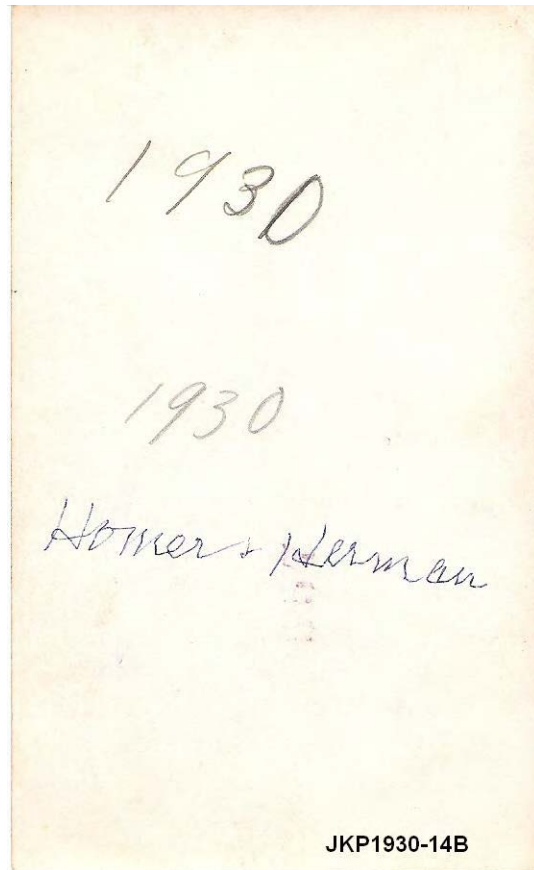 1930
1930
Homer + Herman
JKP1930-14B